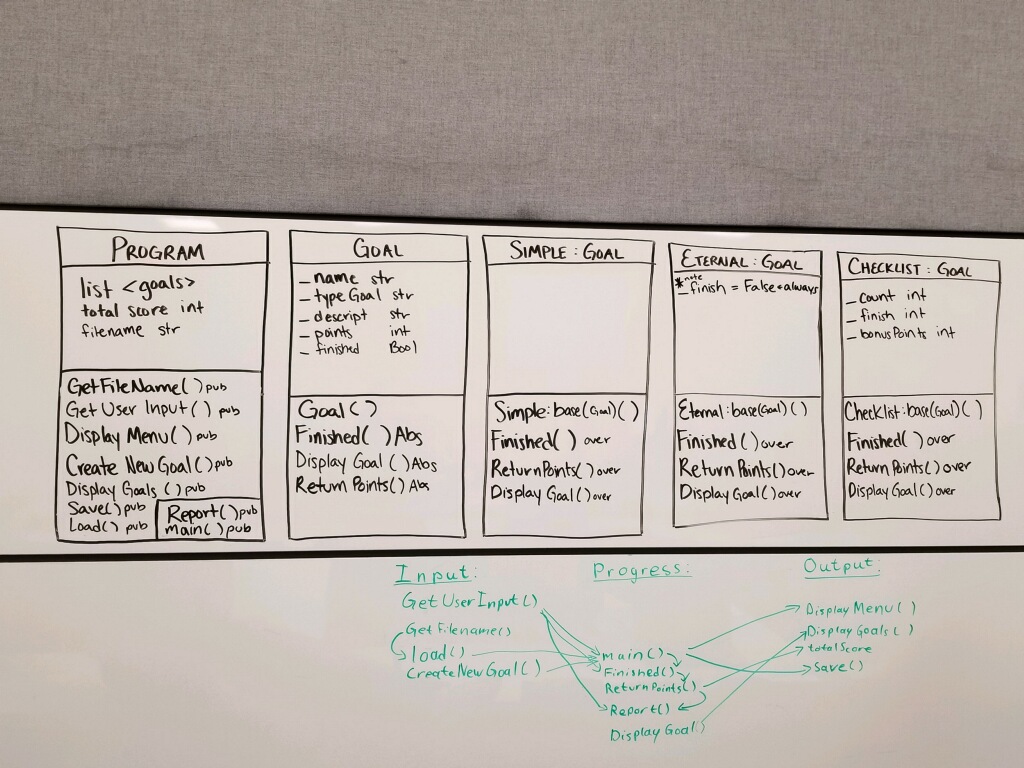 PROGRAM
list <goals>
total score int
filename str
GetFileName() pub
Get User Input() pub
Display Menu() pub
Create New Goal() pub
Display Goals () pub
Save() pub
Load() pub
Report() pub
main() pub
GOAL
_name str
_type Goal str
_descript str
_points int
_finished Bool
Goal()
Finished() Abs
Display Goal() Abs
Return Points() Abs
SIMPLE : GOAL
Simple:base(Goal)()
Finished() over
Return Points() over
Display Goal() over
ETERNAL : GOAL
*note
_finish = False ← always
Eternal:base(Goal)()
Finished() over
Return Points() over
Display Goal() over
CHECKLIST : GOAL
_count int
_finish int
_bonusPoints int
Checklist:base(Goal)()
Finished() over
Return Points() over
Display Goal() over
Input:
GetUserInput()
GetFilename()
load()
CreateNewGoal()
Progress:
main()
Finished()
ReturnPoints()
Report()
Display Goal()
Output:
DisplayMenu()
DisplayGoals()
totalScore
Save()